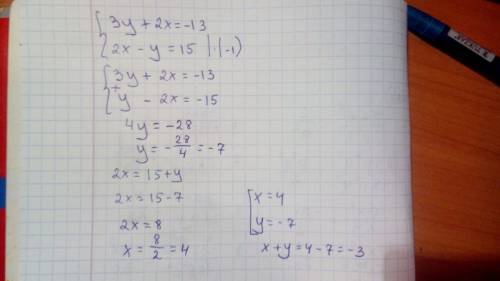 3y + 2x = -13
2x - y = 15 | · (-1)
3y + 2x = -13
+ y - 2x = -15
4y = -28
y = -28/4 = -7
2x = 15 + y
2x = 15 - 7
2x = 8
x = 8/2 = 4
x = 4
y = -7
x + y = 4 - 7 = -3